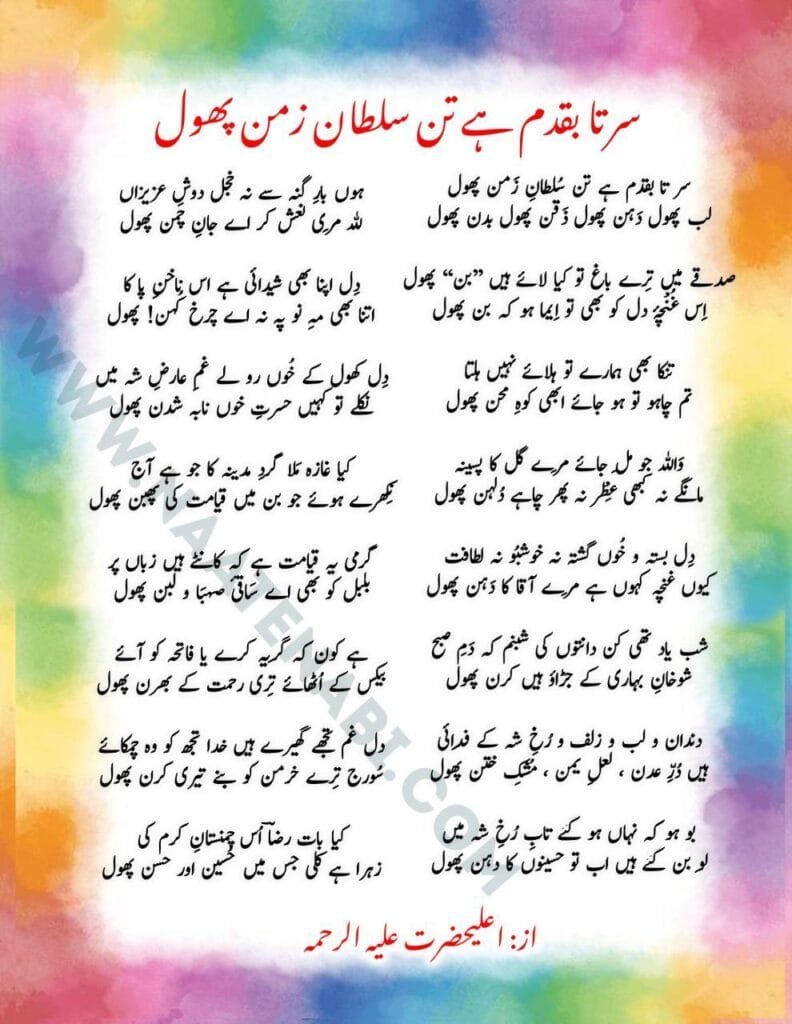 سر تا بقدم ہے تن سلطان زمن پھول
سر تا بقدم ہے تن سُلطانِ زَمن پھول
لب پھول دَہن پھول ذَقن پھول بدن پھول
صدقے میں تِرے باغ تو کیا لائے ہیں ”بن“ پھول
اِس غُنچۂ دل کو بھی تو اِیما ہو کہ بن پھول
تنکا بھی ہمارے تو ہلائے نہیں ہلتا
تم چاہو تو ہو جائے ابھی کوہِ محن پھول
وَاللہ جو مِل جائے مرے گل کا پسینہ
مانگے نہ کبھی عِطْر نہ پھر چاہے دُلہن پھول
دِل بستہ و خُوں گشتہ نہ خوشبُو نہ لطافت
کیوں غنچہ کہوں ہے مرے آقا کا دَہن پھول
شب یاد تھی کن دانتوں کی شبنم کہ دَمِ صبح
شوخانِ بہاری کے جڑاؤ ہیں کرن پھول
دندان و لب و زلف و رُخِ شہ کے فدائی
ہیں دُرِّ عدن ، لعلِ یمن ، مُشکِ ختن پھول
بو ہو کہ نہاں ہو گئے تابِ رُخِ شہ میں
لو بن گئے ہیں اب تو حسینوں کا دہن پھول
ہوں بارِ گنہ سے نہ خجل دوشِ عزیزاں
للہ مری نعش کر اے جانِ چمن پھول
دِل اپنا بھی شیدائی ہے اس ناخنِ پا کا
اتنا بھی مہِ نو پہ نہ اے چرخِ کہن! پھول
دِل کھول کے خُوں رو لے غمِ عارضِ شہ میں
نکلے تو کہیں حسرتِ خوں نابہ شدن پھول
کیا غازہ مَلا گردِ مدینہ کا جو ہے آج
نِکھرے ہوئے جو بن میں قیامت کی پھبن پھول
گرمی یہ قیامت ہے کہ کانٹے ہیں زباں پر
بلبل کو بھی اے ساقیٔ صہبَا و لبن پھول
ہے کون کہ گریہ کرے یا فاتحہ کو آئے
بیکس کے اُٹھائے تِری رحمت کے بھرن پھول
دل غم تجھے گھیرے ہیں خدا تجھ کو وہ چمکائے
سُورج تِرے خرمن کو بنے تیری کرن پھول
کیا بات رضاؔ اُس چمنستانِ کرم کی
زہرا ہے کلی جس میں حُسین اور حسن پھول
از: اعلیحضرت علیہ الرحمہ
WWW.NAATENABI.COM